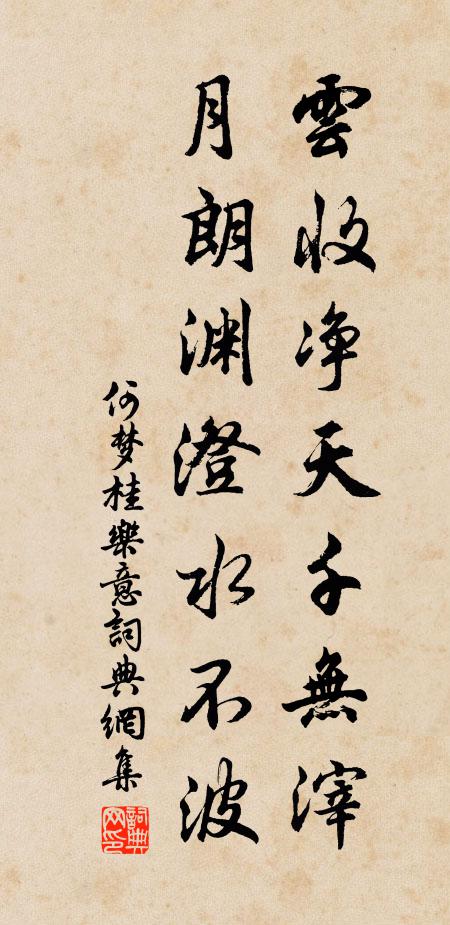 雲收净天千無滓
月朗渊澄水不波
何梦桂樂意詞典網集
詞典
网印